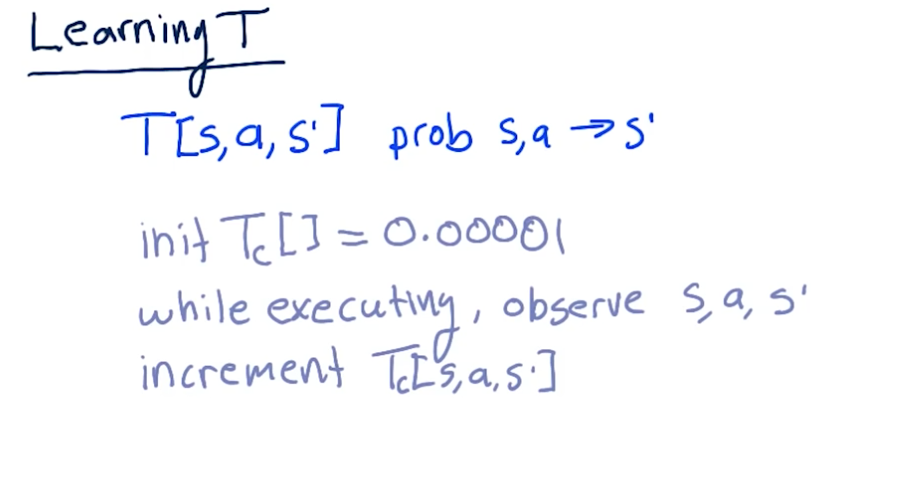 Learning T
T[s,a,s'] prob s,a → s'
init Tc[] = 0.00001
while executing, observe s,a,s'
increment Tc[s,a,s']